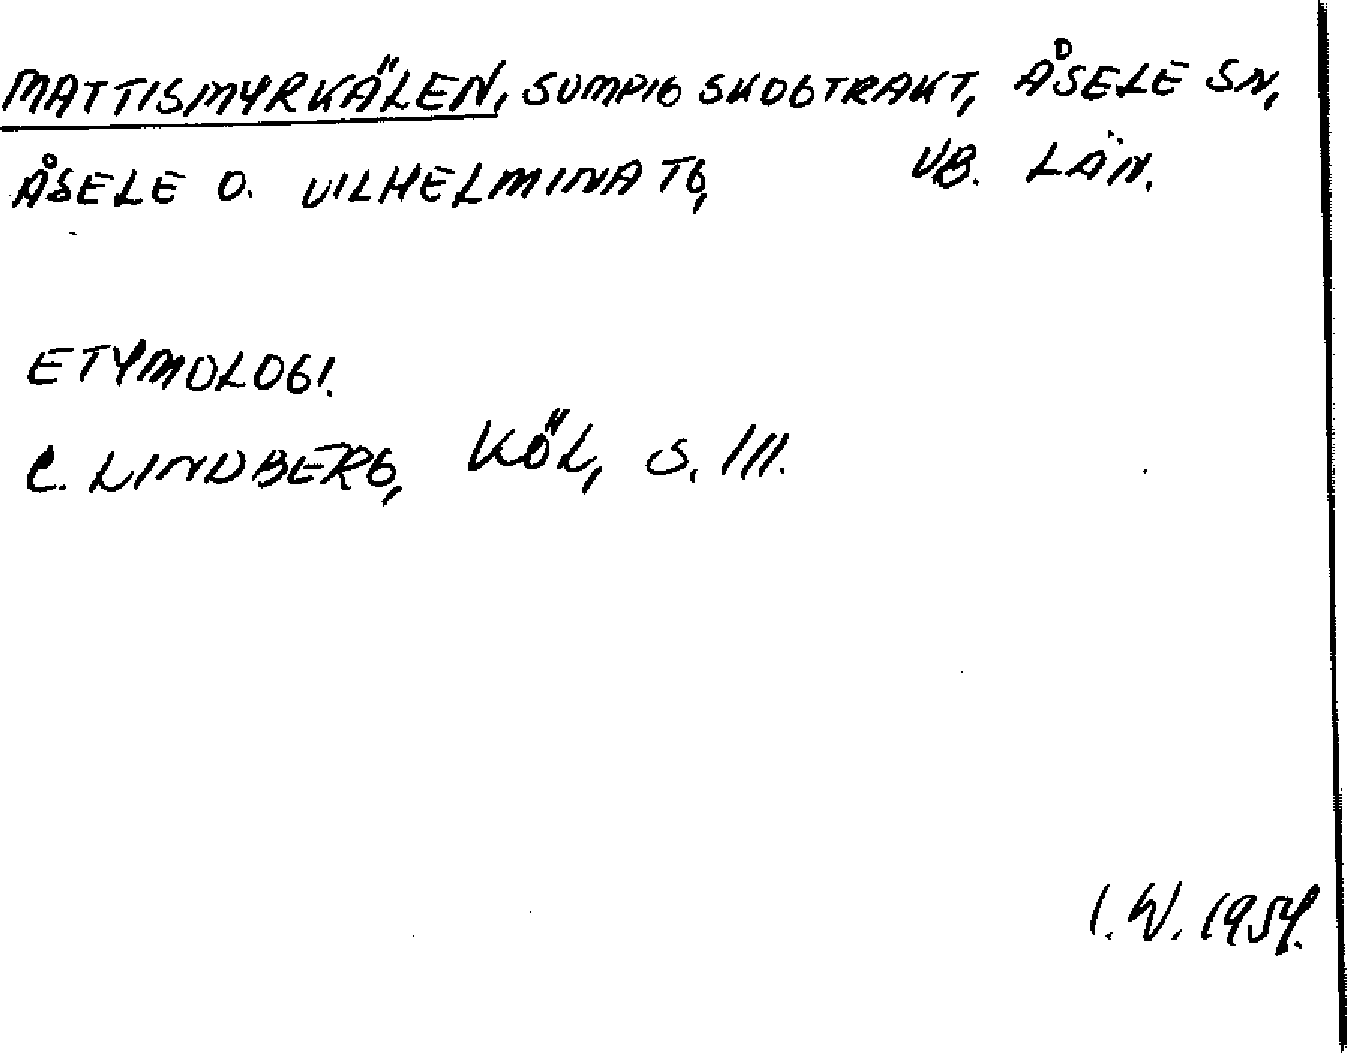 MATTISMYRKÄLEN, SUMPIG SKOGTRAKT, ÅSELE SN,
ÅSELE O. VILHELMINA TG, VB. LÄN.
ETYMOLOGI.
C. LINDBERG, KÖL, S. 111.
I. W. 1954.